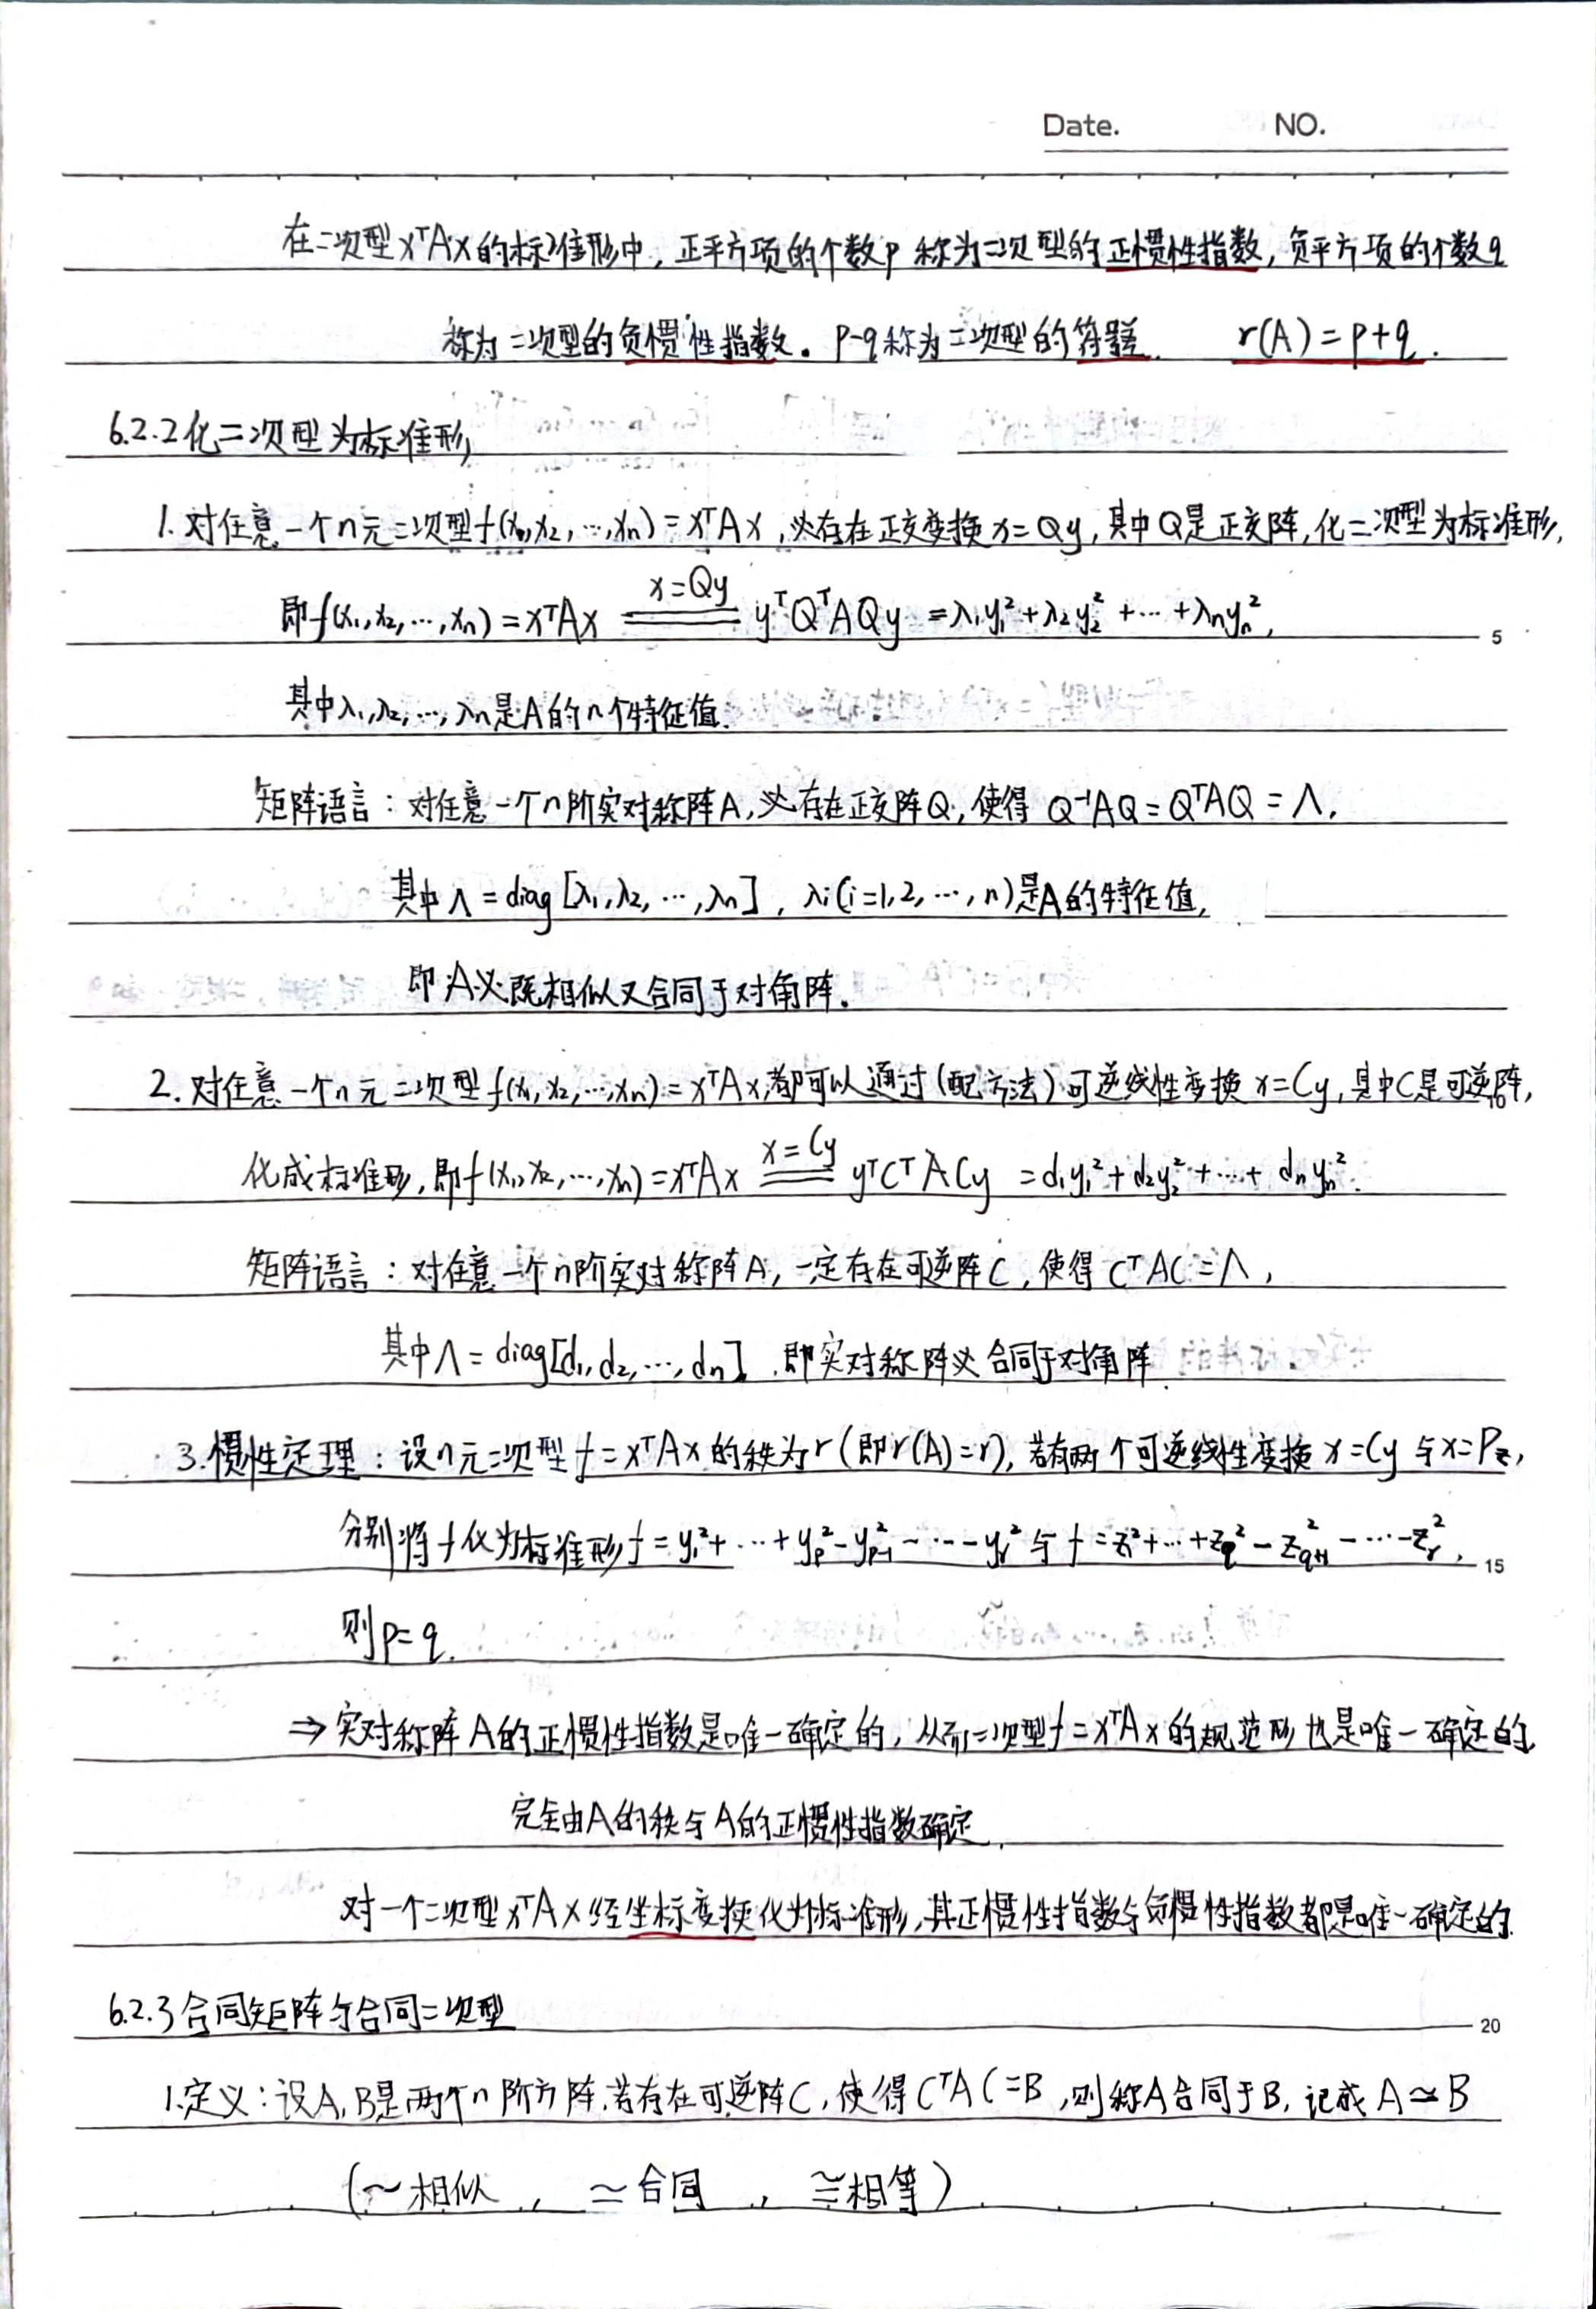 Date. NO.
在二次型xᵀAx的标准形中，正平方项的个数p 称为二次型的正惯性指数，负平方项的个数q
称为二次型的负惯性指数。p-q称为二次型的符号差. r(A)=p+q.
6.2.2化二次型为标准形
1. 对任意一个n元二次型f(x₁,x₂,⋯,xₙ)=xᵀAx，必存在正交变换x=Qy，其中Q是正交阵，化二次型为标准形，
即f(x₁,x₂,⋯,xₙ)=xᵀAx ══(x=Qy)══ yᵀQᵀAQy=λ₁y₁²+λ₂y₂²+⋯+λₙyₙ²,
5
其中λ₁,λ₂,⋯,λₙ是A的n个特征值.
矩阵语言：对任意一个n阶实对称阵A，必存在正交阵Q，使得 Q⁻¹AQ=QᵀAQ=Λ,
其中Λ=diag[λ₁,λ₂,⋯,λₙ]，λᵢ(i=1,2,⋯,n)是A的特征值,
即A必既相似又合同于对角阵。
2. 对任意一个n元二次型f(x₁,x₂,⋯,xₙ)=xᵀAx,都可以通过(配方法)可逆线性变换x=Cy,其中C是可逆阵,
10
化成标准形,即f(x₁,x₂,⋯,xₙ)=xᵀAx ══(x=Cy)══ yᵀCᵀACy=d₁y₁²+d₂y₂²+⋯+dₙyₙ².
矩阵语言：对任意一个n阶实对称阵A，一定存在可逆阵C，使得CᵀAC=Λ,
其中Λ=diag[d₁,d₂,⋯,dₙ].即实对称阵必合同于对角阵.
3.惯性定理：设n元二次型f=xᵀAx的秩为r(即r(A)=r)，若有两个可逆线性变换x=Cy与x=Pz,
分别将f化为标准形f=y₁²+⋯+yₚ²-yₚ₋₁²-⋯-yᵣ²与f=z₁²+⋯+z_q²-z_{q+1}²-⋯-zᵣ²,
15
则p=q.
⇒实对称阵A的正惯性指数是唯一确定的，从而二次型f=xᵀAx的规范形也是唯一确定的,
完全由A的秩与A的正惯性指数确定.
对一个二次型xᵀAx经坐标变换化为标准形,其正惯性指数与负惯性指数都是唯一确定的.
6.2.3合同矩阵与合同二次型
20
1.定义：设A,B是两个n阶方阵.若存在可逆阵C，使得CᵀAC=B,则称A合同于B, 记成 A≃B
(～相似 , ≃合同 , ≅相等)